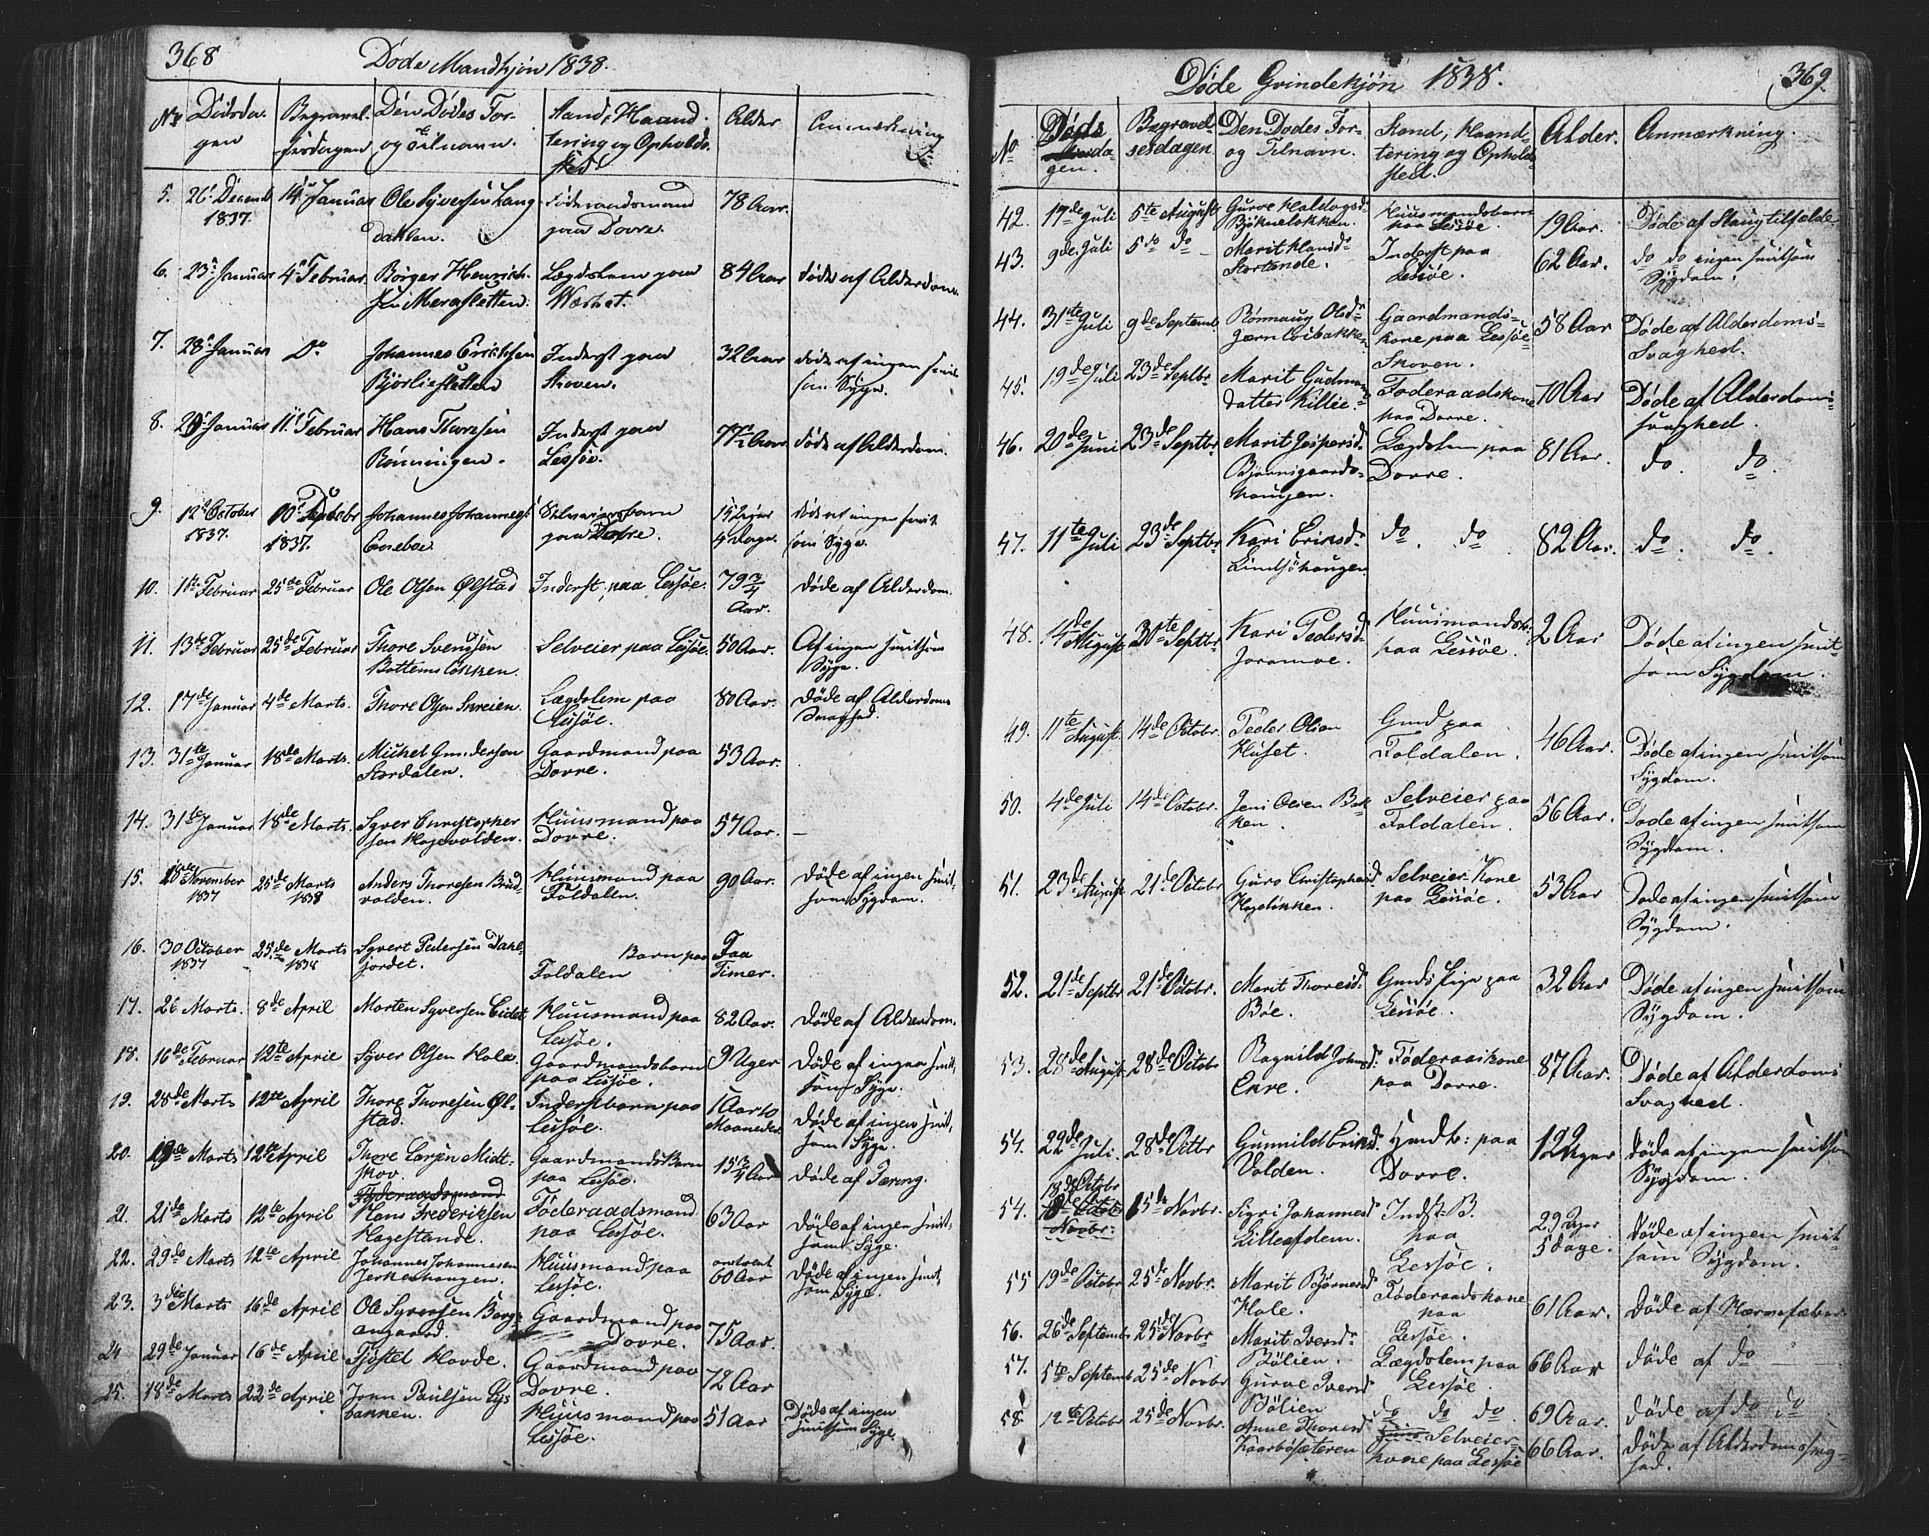 368
Døde Mandkjøn 1838.
No Dødsdagen Begravelsesdagen Den Dødes For- og Tilnavn. Stand, Haandtering og Opholdssted Alder Anmærkning
5. 26 Decemb 1837. 14 Januar Ole Syversen Lang dahlen. Føderaadsmand paa Dovre. 78 Aar.
6. 23 Januar 4 Februar Børger Henrichsen Meraslette. Lægdslem paa 84 Aar døde af Alderdom.
7. 28 Januar Do Johannes Erichsen Bjorlisletten Inderst paa Skoven. 32 Aar døde af ingen smitsom Syge.
8. 26 Januar 11 Februar Hans Thoresen Rønningen. Inderst paa Lessøe. 77½ Aar døde af Alderdom.
9. 12 October 1837. 10 Decbr 1837. Johannes Johannes Eneboe. Selveiersbarn paa Dovre. 4 Dage. døde af ingen smitsom Syge.
10. 11te Februar 25de Februar Ole Olsen Ølstad Inderst paa Lessøe. 79 3/4 Aar. døde af Alderdom.
11. 13de Februar 25de Februar Thore Svendsen Bottemsløkken. Selveier paa Lessøe. 50 Aar. Af ingen smitsom Syge.
12. 17de Januar 4de Marts. Thore Olsen Lægdslem paa Lessøe. 80 Aar. døde af Alderdoms Svaghed.
13. 31te Januar 18de Marts. Michel Gundersen Stordalen. Gaardmand paa Dovre. 53 Aar.
14. 31te Januar 18de Marts. Syver Christophersen Hagevolden. Huusmand paa Dovre. 57 Aar. —
15. November 1837 25de Marts 1838 Anders Thoresen Brudvolden. Huusmand paa Foldalen. 90 Aar. døde af ingen smitsom Sygdom.
16. 30 October 1837 25de Marts 1838 Syvert Pedersen Dahljordet. Barn paa Foldalen Faa Timer.
17. 26 Marts. 8de April Morten Syversen Eidet Huusmand paa Lessøe. 82 Aar. Døde af Alderdom.
18. 16de Februar 12te April Syver Olsen Hole. Gaardmandsbarn paa Lessøe. 9 Uger Døde af ingen smitsom Syge.
19. 28de Marts 12te April Thore Thoresen Ølstad. Inderstbarn paa Lessøe. 1 Aar 10 Maaneder. Døde af ingen smitsom Syge.
20. 19de Marts 12te April Thore Larsen Midtskov. Gaardmandsbarn paa Lessøe. 15 3/4 Aar Døde af Tæring.
Føderaadsmand
21. 21de Marts 12te April Hans Frederiksen Hagestande. Føderaadsmand paa Lessøe. 63 Aar Døde af ingen smitsom Syge.
22. 29de Marts 12te April Johannes Johannesen Jerkenhaugen. Huusmand paa Lessøe. omtrent 60 Aar Døde af ingen smitsom Syge.
23. 3die Marts 16de April Ole Syversen Bergsengaard. Gaardmand paa Dovre. 75 Aar.
24 29de Januar 16de April Fjøstel Hovde. Gaardmand paa Dovre. 72 Aar
25. 18de Marts 22de April Joen Paulsen Lysbakken. Huusmand paa Lessøe. 51 Aar Døde af ingen smitsom Syge.
369.
Døde Qvindekjøn 1838.
No Dødsdagen. Begravelsesdagen Den Dødes For- og Tilnavn. Stand, Haandtering og Opholdssted. Alder. Anmærkning.
42. 17de Juli 5te August Guroe Haldogsd. Bjøknelokken. Huusmandsbarn paa Lessøe. 19 Aar. Døde af Slangtilfælde
43. 9de Juli 5 do do — Marit Hansd. Stortande. Inderst paa Lessøe. 62 Aar. do do ingen smitsom Sygdom.
44. 31te Juli 9de Septemb Rønnaug Olsd. Jærnløibakken Gaardmandskone paa Lessøe-Skoven. 58 Aar Døde af Alderdoms-Svaghed.
45. 19de Juli 23de Septbr Marit Gudmundatter Killie. Føderaadskone paa Dovre. 70 Aar Døde af Alderdomssvaghed.
46. 20de Juni 23de Septbr Marit Jespersd. Bjønnsgaardshaugen. Lægdslem paa Dovre. 81 Aar. do. do.
47. 11te Juli 23de Septbr. Kari Eriksd. Lindsøhaugen do. do. 82 Aar. do. do.
48. 14de August 30te Septbr. Kari Pedersd. Joramoe. Huusmandsb. paa Lessøe. 2 Aar Døde af ingen smitsom Sygdom.
49. 11te August 14de Octobr. Peder Olsen Huset. Gmd paa Foldalen. 46 Aar. Døde af ingen smitsom Sygdom.
50. 4de Juli 14de Octobr. Jens Olsen Bakken. Selveier paa Foldalen. 56 Aar. Døde af ingen smitsom Sygdom.
51. 23de August 21de Octobr Guro Christophersd Hageløkken. Selveier Kone paa Lessøe. 53 Aar Døde af ingen smitsom Sygdom.
52. 21de Septbr 21de Octobr. Marit Thoresd. Bøe. Gmds Pige paa Lessøe. 32 Aar Døde af ingen smitsom Sygdom.
53. 28de August 28de Octobr Ragnild Johnsd. Enre. Føderaadkone paa Dovre. 87 Aar. Døde af Alderdoms Svaghed.
54. 22de Juli. 28de Octbr Gunnild Eriksd. Volden. paa Dovre. 12 Uger døde af ingen smitsom Sygdom.
54. 18de Octobr Novbr. 5de Novbr. Sigri Johannesd Lilleafdem. Indst: B. paa Lessøe. 29 Uger 5 dage. Døde af ingen smitsom Sygdom.
55 19de Octobr 25de Novbr. Marit Bjørnersd Hole. Føderaadskone paa Lessøe. 61 Aar. Døde af Nervefeber
56. 26de Septemb 25de Novbr Marit Iversd. Bølien. Lægdslem paa Lessøe. 66 Aar døde af do
57. 5te Septemb 25de Novbr Guroe Iversd Bølien do do do 69 Aar. døde af do do
58 12te Octobr 25de Novbr. Anne Thoresd Kaarbøsæteren Selveierkone paa Lessøe 66 Aar. døde af Alderdomssvaghed.